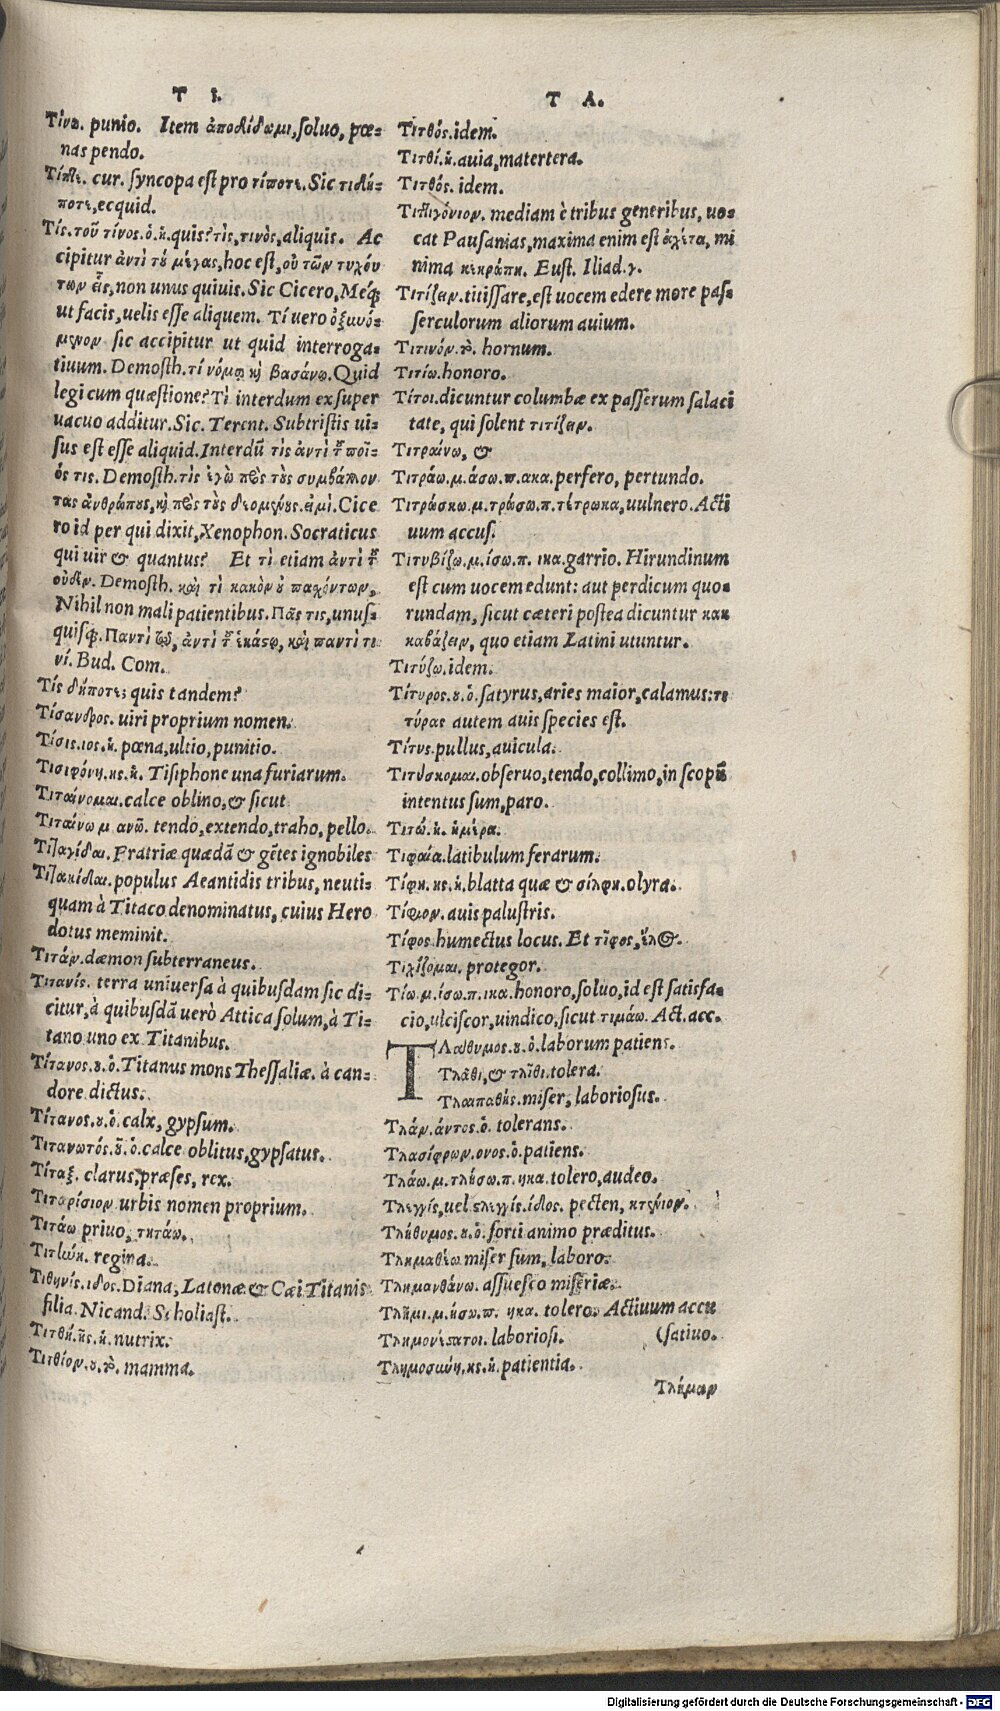 Τ Ι.
Τίνω. punio. Item ἀποδίδωμι, ſoluo, pœ=
nas pendo.
Τίπτε. cur. ſyncopa eſt pro τίποτε. Sic τιδή=
ποτε, ecquid.
Τίς. τοῦ τίνος. ὁ. ἡ. quis? τὶς, τινὸς, aliquis. Ac
cipitur ἀντὶ τοῦ μέγας, hoc eſt, οὐ τῶν τυχόν
των εἷς, non unus quiuis. Sic Cicero, Meq́;
ut facis, uelis eſſe aliquem. Τί uero ὀξυνό=
μενον ſic accipitur ut quid interroga=
tiuum. Demoſth. τί νόμῳ καὶ βασάνῳ. Quid
legi cum quæſtione? Τὶ interdum ex ſuper
uacuo additur. Sic. Terent. Subtriſtis ui=
ſus eſt eſſe aliquid. Interdũ τὶς ἀντὶ τοῦ ποῖ=
ός τις. Demoſth. τὶς ἐγὼ πρὸς τοὺς συμβάλλον
τας ἀνθρώπους, καὶ πρὸς τοὺς δεομένους εἰμί. Cice
ro id per qui dixit, Xenophon. Socraticus
qui uir & quantus? Et τὶ etiam ἀντὶ τοῦ
οὐδέν. Demoſth. καὶ τὶ κακὸν οὐ παχόντων,
Nihil non mali patientibus. Πᾶς τις, unuſ=
quiſq́;. Παντὶ τῳ, ἀντὶ τοῦ ἑκάστῳ, καὶ παντὶ τι
νί. Bud. Com.
Τίς δήποτε; quis tandem?
Τίσανδρος. uiri proprium nomen.
Τίσις. ιος. ἡ. pœna, ultio, punitio.
Τισιφόνη. ης. ἡ. Tiſiphone una furiarum.
Τιταίνομαι. calce oblino, & ſicut
Τιταίνω μ ανῶ. tendo, extendo, traho, pello.
Τιταγίδαι. Fratriæ quædã & gẽtes ignobiles
Τιτακίδαι. populus Aeantidis tribus, neuti=
quam à Titaco denominatus, cuius Hero
dotus meminit.
Τιτάν. dæmon ſubterraneus.
Τιτανίς. terra uniuerſa à quibuſdam ſic di=
citur, à quibuſdã uerò Attica ſolum, à Ti=
tano uno ex Titanibus.
Τίτανος. ου. ὁ. Titanus mons Theſſaliæ. à can=
dore dictus.
Τίτανος. ου. ὁ. calx, gypſum.
Τιτανωτός. οῦ. ὁ. calce oblitus, gypſatus.
Τίταξ. clarus, præſes, rex.
Τιταρίσιον urbis nomen proprium.
Τιτάω priuo, τητάω.
Τιτώνη. regina.
Τιθηνίς. ιδος. Diana, Latonæ & Cæi Titanis
filia. Nicand. Scholiaſt.
Τιτθή. ῆς. ἡ. nutrix.
Τιτθίον. ου. τὸ. mamma.
Τ Λ.
Τιτθός. idem.
Τιτθί. ἡ. auia, matertera.
Τιτθός. idem.
Τιττιγόνιον. mediam è tribus generibus, uo=
cat Pauſanias, maxima enim eſt ἀχέτα, mi
nima κεκράπη. Euſt. Iliad. γ.
Τιτίζειν. titiſſare, eſt uocem edere more paſ=
ſerculorum aliorum auium.
Τιτινόν. τὸ. hornum.
Τιτίω. honoro.
Τίτοι. dicuntur columbæ ex paſſerum ſalaci
tate, qui ſolent τιτίζειν.
Τιτραίνω, &
Τιτράω. μ. άσω. π. ακα. perfero, pertundo.
Τιτρώσκω. μ. τρώσω. π. τέτρωκα, uulnero. Acti
uum accuſ.
Τιτυβίζω. μ. ίσω. π. ικα. garrio. Hirundinum
eſt cum uocem edunt: aut perdicum quo=
rundam, ſicut cæteri poſtea dicuntur κακ
καβάζειν, quo etiam Latini utuntur.
Τιτύζω. idem.
Τίτυρος. ου. ὁ. ſatyrus, aries maior, calamus: τι
τύρας autem auis ſpecies eſt.
Τίτυς. pullus, auicula.
Τιτύσκομαι. obſeruo, tendo, collimo, in ſcopũ
intentus ſum, paro.
Τιτώ. ἡ. ἡμέρα.
Τιφαία. latibulum ferarum.
Τίφη. ης. ἡ. blatta quæ & σίλφη. olyra.
Τίφιον. auis paluſtris.
Τίφος humectus locus. Et τῖφος, ἕλος.
Τιχίζομαι. protegor.
Τίω. μ. ίσω. π. ικα. honoro, ſoluo, id eſt ſatisfa=
cio, ulciſcor, uindico, ſicut τιμάω. Act. acc.
ΤΛάθυμος. ου. ὁ. laborum patiens.
Τλᾶθι, & τλῆθι. tolera.
Τλαιπαθής. miſer, laborioſus.
Τλάν. άντος. ὁ. tolerans.
Τλασίφρων. ονος. ὁ. patiens.
Τλάω. μ. τλήσω. π. ηκα. tolero, audeo.
Τλεγγίς, uel στλεγγίς. ίδος. pecten, κτένιον.
Τλήθυμος. ου. ὁ. forti animo præditus.
Τλημαθέω miſer ſum, laboro.
Τλημανθάνω. aſſueſco miſeriæ.
Τλῆμι. μ. ήσω. π. ηκα. tolero. Actiuum accu
(ſatiuo.
Τλημονέστατοι. laborioſi.
Τλημοσύνη. ης. ἡ. patientia.
Τλήμων
Digitalisierung gefördert durch die Deutsche Forschungsgemeinschaft - DFG